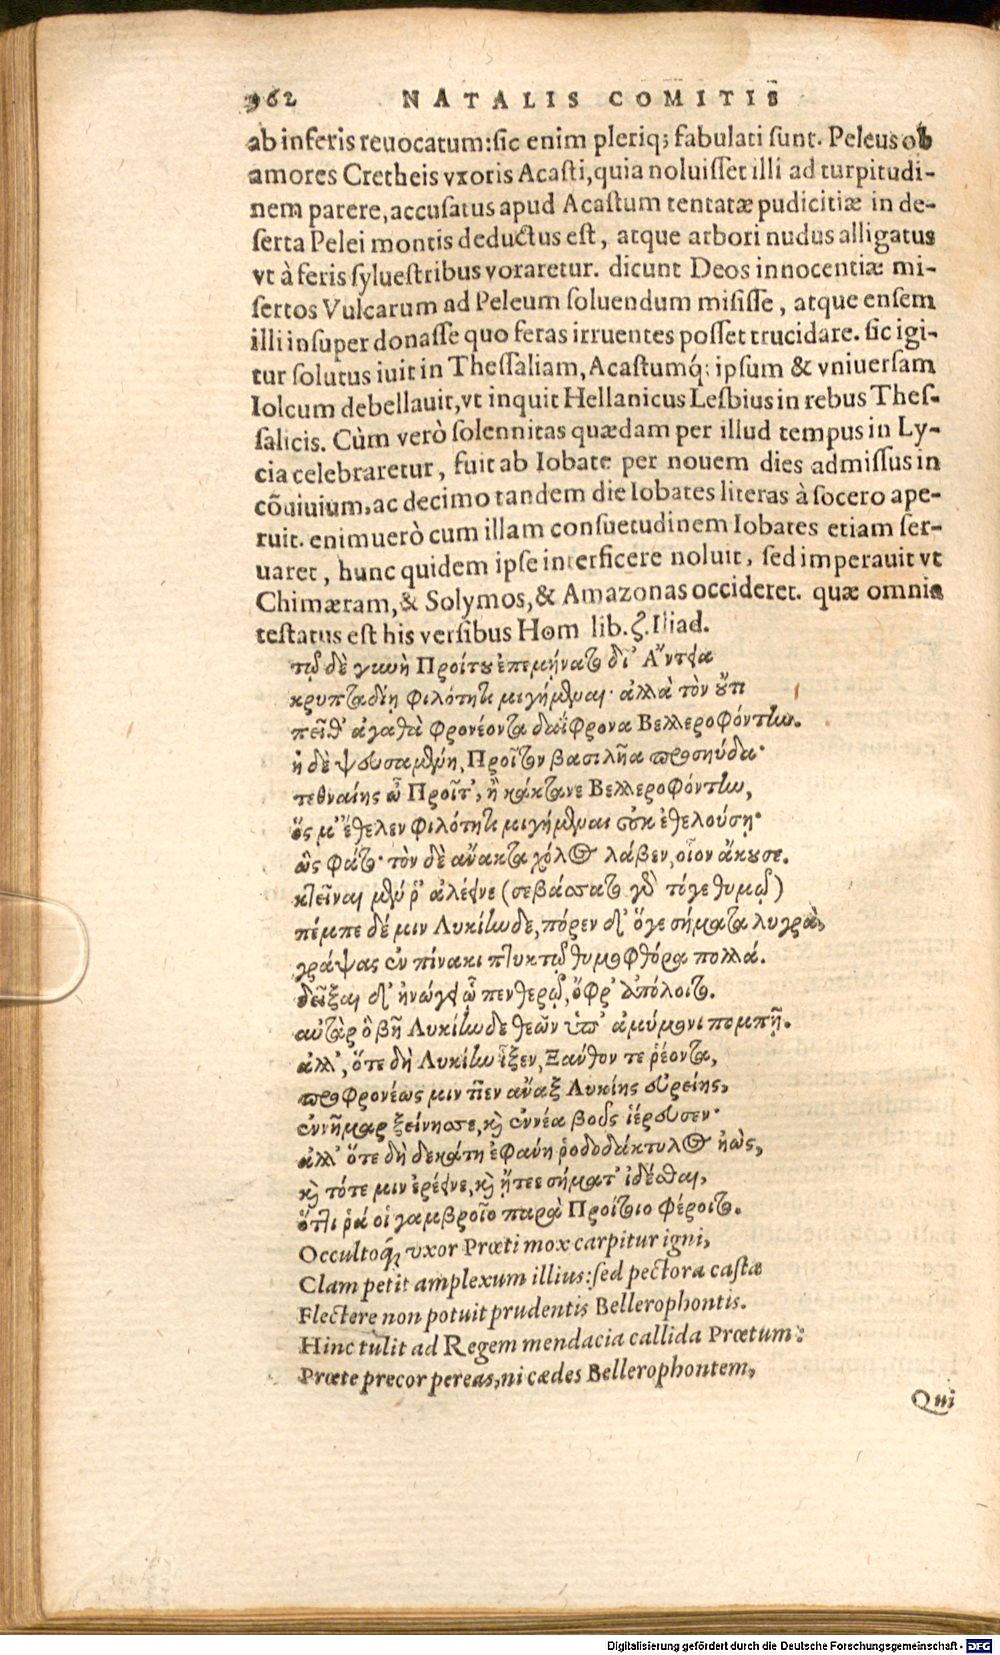 962 NATALIS COMITIS
ab inferis reuocatum: sic enim pleriq; fabulati sunt. Peleus ob
amores Cretheis vxoris Acasti, quia noluisset illi ad turpitudi-
nem parere, accusatus apud Acastum tentatæ pudicitiæ in de-
serta Pelei montis deductus est, atque arbori nudus alligatus
vt à feris syluestribus voraretur. dicunt Deos innocentiæ mi-
sertos Vulcarum ad Peleum soluendum misisse, atque ensem
illi insuper donasse quo feras irruentes posset trucidare. sic igi-
tur solutus iuit in Thessaliam, Acastumq́; ipsum & vniuersam
Iolcum debellauit, vt inquit Hellanicus Lesbius in rebus Thes-
salicis. Cùm verò solennitas quædam per illud tempus in Ly-
cia celebraretur, fuit ab Iobate per nouem dies admissus in
cõuiuium, ac decimo tandem die Iobates literas à socero ape-
ruit. enimuerò cum illam consuetudinem Iobates etiam ser-
uaret, hunc quidem ipse interficere noluit, sed imperauit vt
Chimæram, & Solymos, & Amazonas occideret. quæ omnia
testatus est his versibus Hom lib. ζ. Iliad.
τῷ δὲ γυνὴ Προίτου ἐπεμήνατο δι᾽ Ἄντεια
κρυπταδίῃ φιλότητι μιγήμεναι· ἀλλὰ τὸν οὔτι
πεῖθ᾽ ἀγαθὰ φρονέοντα δαΐφρονα Βελλεροφόντην.
ἡ δὲ ψευσαμένη, Προῖτον βασιλῆα προσηύδα·
τεθναίης ὦ Προῖτ᾽, ἢ κάκτανε Βελλεροφόντην,
ὅς μ᾽ ἔθελεν φιλότητι μιγήμεναι οὐκ ἐθελούσῃ·
ὣς φάτο· τὸν δὲ ἄνακτα χόλος λάβεν, οἷον ἄκουσε.
κτεῖναι μέν ῥ᾽ ἀλέεινε (σεβάσσατο γὰρ τόγε θυμῷ)
πέμπε δέ μιν Λυκίηνδε, πόρεν δ᾽ ὅγε σήματα λυγρὰ,
γράψας ἐν πίνακι πτυκτῷ θυμοφθόρα πολλά.
δεῖξαι δ᾽ ἠνώγει ᾧ πενθερῷ, ὄφρ᾽ ἀπόλοιτο.
αὐτὰρ ὃ βῆ Λυκίηνδε θεῶν ὑπ᾽ ἀμύμονι πομπῇ.
ἀλλ᾽, ὅτε δὴ Λυκίην ἷξεν, Ξαύθον τε ῥέοντα,
προφρονέως μιν τῖεν ἄναξ Λυκίης εὐρείης,
ἐννῆμαρ ξείνησσε, καὶ ἐννέα βοῦς ἱέρευσεν·
ἀλλ᾽ ὅτε δὴ δεκάτη ἐφαύη ῥοδοδάκτυλος ἠὼς,
καὶ τότε μιν ἐρέεινε, καὶ ᾔτεε σήματ᾽ ἰδέσθαι,
ὅττι ῥά οἱ γαμβροῖο παρὰ Προίτοιο φέροιτο.
Occultoq́; vxor Prœti mox carpitur igni,
Clam petit amplexum illius: sed pectora castæ
Flectere non potuit prudentis Bellerophontis.
Hinc tulit ad Regem mendacia callida Prœtum:
Prœte precor pereas, ni cædes Bellerophontem,
Qui
Digitalisierung gefördert durch die Deutsche Forschungsgemeinschaft - DFG